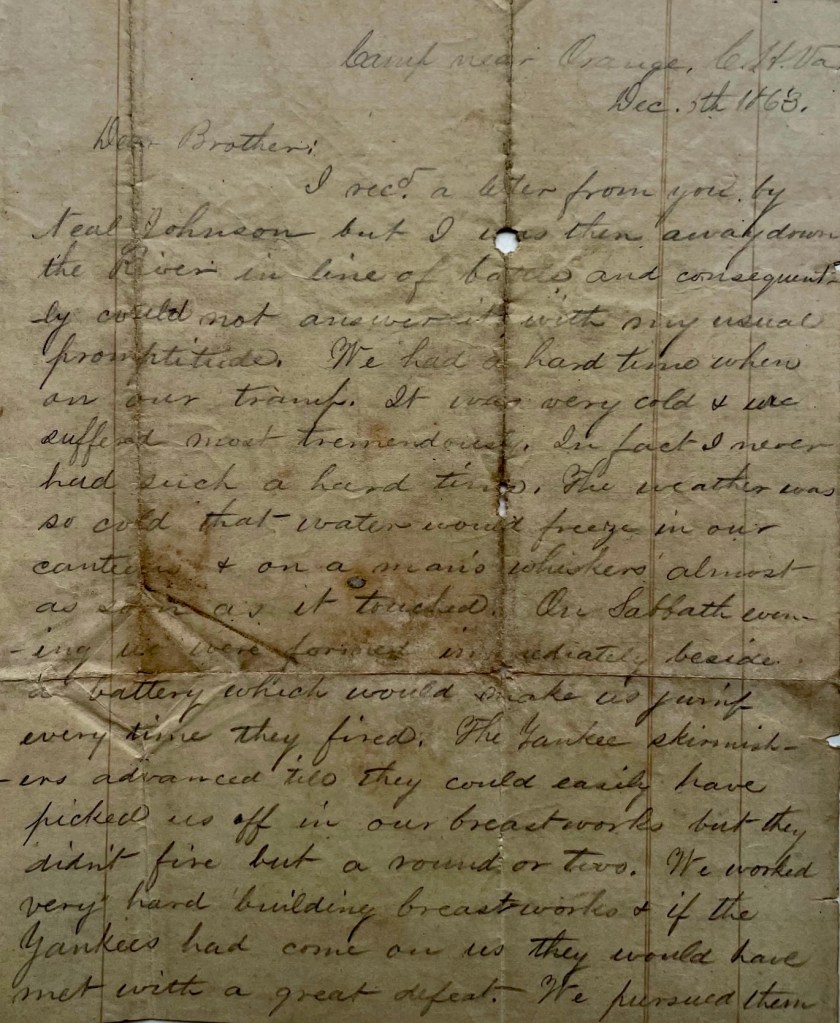 Camp near Orange, C.H. Va.
Dec. 5th 1863.
Dear Brother;
I recd. a letter from you by
Neal Johnson but I was then away down
the River in line of battle and consequent-
-ly could not answer it with my usual
promptitude. We had a hard time when
on our tramp. It was very cold & we
sufferd most tremendously. In fact I never
had such a hard time. The weather was
so cold that water would freeze in our
canteens & on a man's whiskers almost
as soon as it touched. On Sabbath even-
-ing we were formed immediately beside
a battery which would make us jump
every time they fired. The Yankee skirmish-
-ers advanced till they could easily have
picked us off in our breastworks but they
didn't fire but a round or two. We worked
very hard building breastworks & if the
Yankees had come on us they would have
met with a great defeat. We pursued them